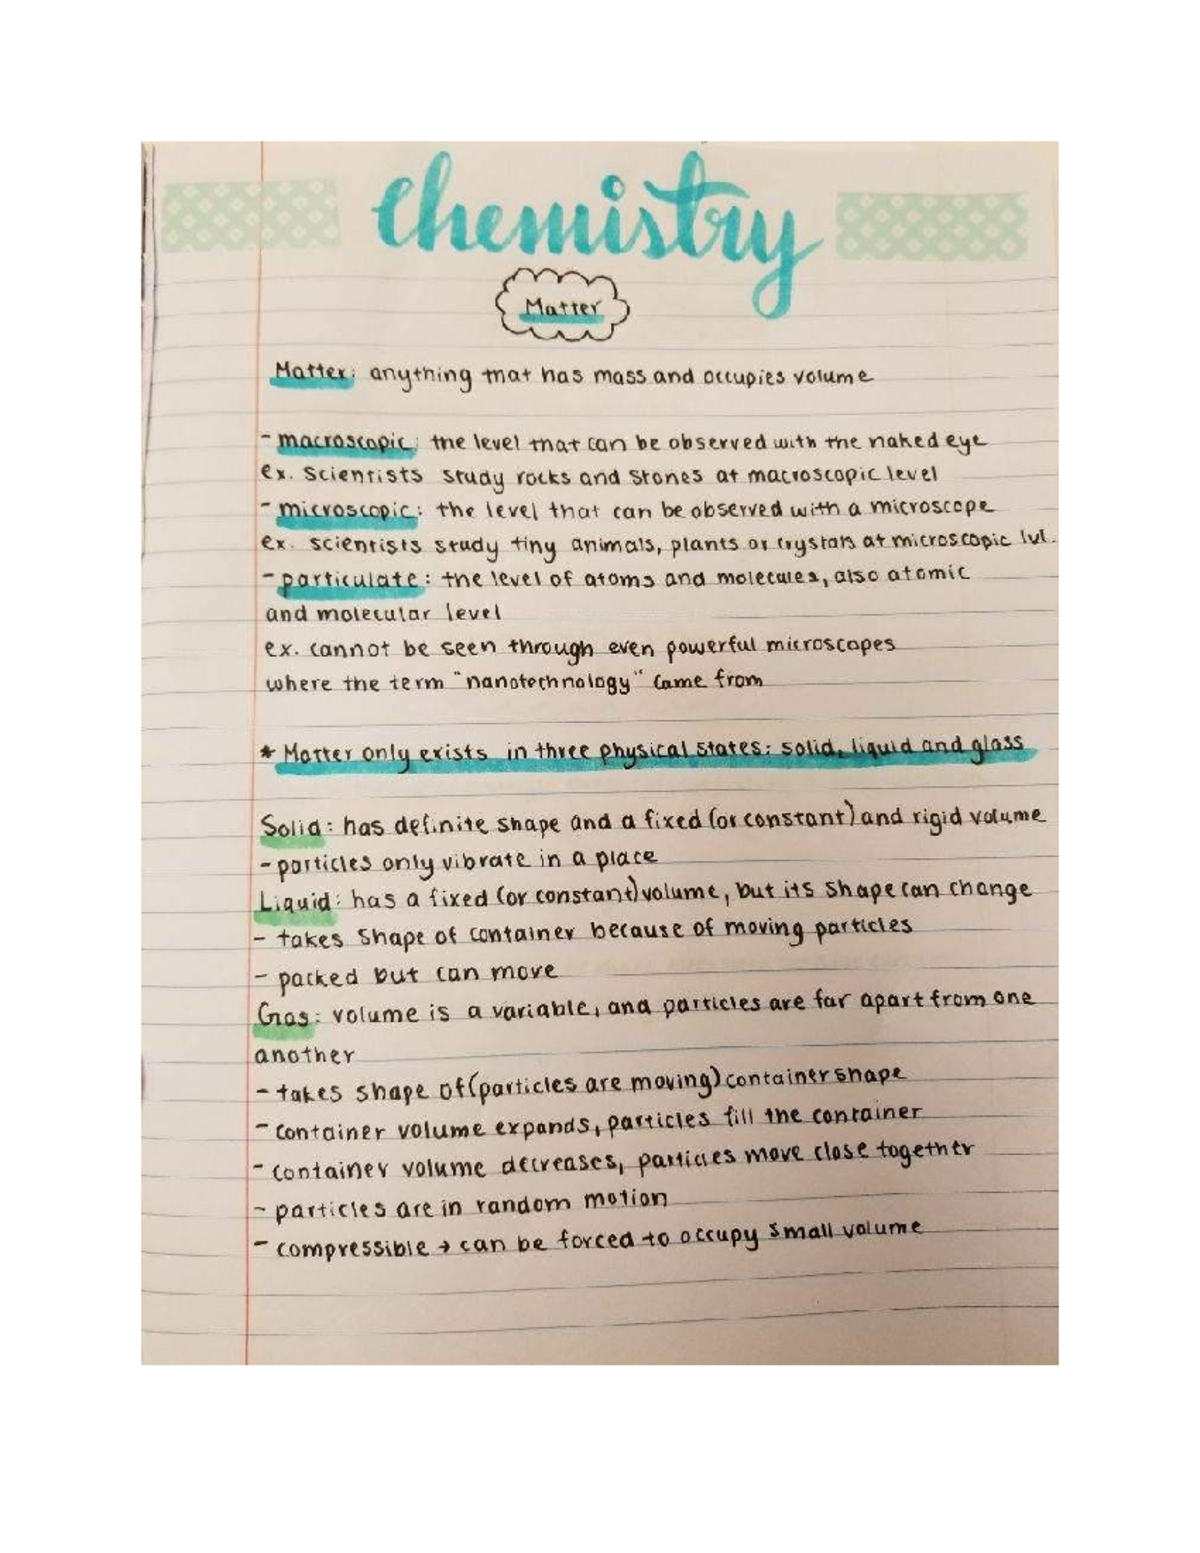 Chemistry
Matter
Matter: anything that has mass and occupies volume
- macroscopic: the level that can be observed with the naked eye
ex. Scientists study rocks and stones at macroscopic level
- microscopic: the level that can be observed with a microscope
ex. scientists study tiny animals, plants or crystals at microscopic lvl.
- particulate: the level of atoms and molecules, also atomic
and molecular level
ex. cannot be seen through even powerful microscopes
where the term "nanotechnology" came from
* Matter only exists in three physical states: solid, liquid and glass
Solid: has definite shape and a fixed (or constant) and rigid volume
- particles only vibrate in a place
Liquid: has a fixed (or constant) volume, but its shape can change
- takes shape of container because of moving particles
- packed but can move
Gas: volume is a variable, and particles are far apart from one
another
- takes shape of (particles are moving) container shape
- container volume expands, particles fill the container
- container volume decreases, particles move close together
- particles are in random motion
- compressible → can be forced to occupy small volume